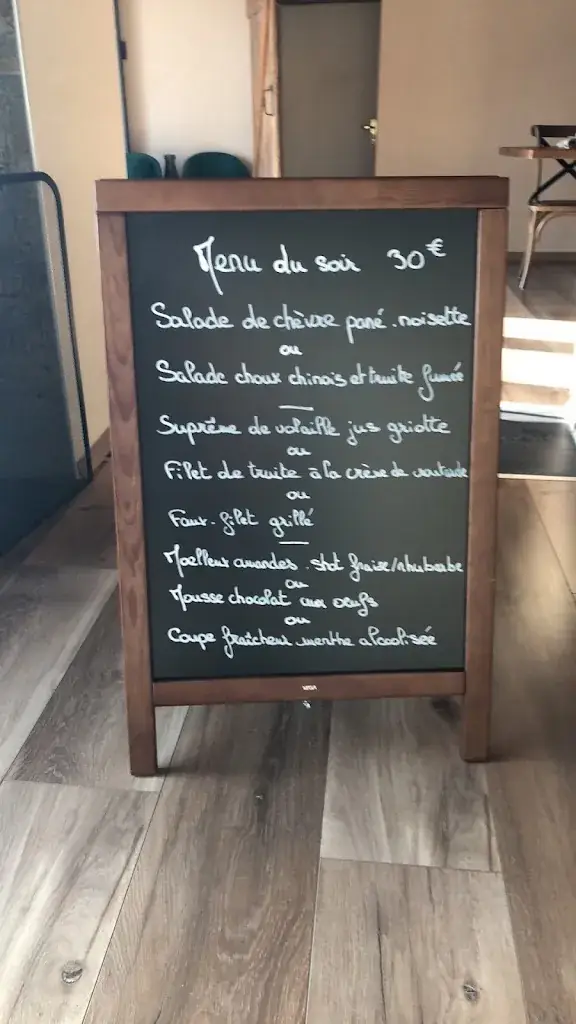 Menu du soir 30€
Salade de chèvre pané. noisette
ou
Salade choux chinois et truite fumée
Suprême de volaille jus griotte
ou
Filet de truite à la crème de
ou
Faux-filet grillé
Moelleux amandes. shot fraise/rhubarbe
ou
Mousse chocolat aux oeufs
ou
Coupe fraîcheur menthe alcoolisée
VEGA